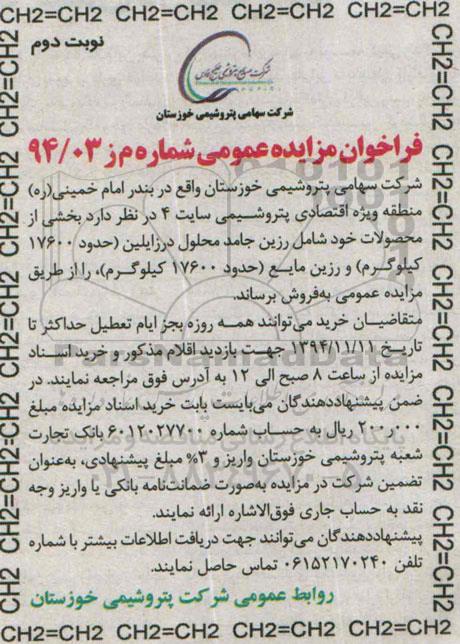 CH2=CH2 CH2=CH2 CH2=CH2 CH2=CH2
نوبت دوم
شرکت صنایع پتروشیمی خلیج فارس
شرکت سهامی پتروشیمی خوزستان
فراخوان مزایده عمومی شماره م ز ۹۴/۰۳
شرکت سهامی پتروشیمی خوزستان واقع در بندر امام خمینی(ره)
منطقه ویژه اقتصادی پتروشیمی سایت ۴ در نظر دارد بخشی از
محصولات خود شامل رزین جامد محلول درزایلین (حدود ۱۷۶۰۰
کیلوگرم) و رزین مایع (حدود ۱۷۶۰۰ کیلوگرم)، را از طریق
مزایده عمومی به‌فروش برساند.
متقاضیان خرید می‌توانند همه روزه بجز ایام تعطیل حداکثر تا
تاریخ ۱۳۹۴/۱۱/۱۱ جهت بازدید اقلام مذکور و خرید اسناد
مزایده از ساعت ۸ صبح الی ۱۲ به آدرس فوق مراجعه نمایند. در
ضمن پیشنهاددهندگان می‌بایست بابت خرید اسناد مزایده مبلغ
۲۰۰٫۰۰۰ ریال به حساب شماره ۶۰۱۲۰۲۷۷۰۰ بانک تجارت
شعبه پتروشیمی خوزستان واریز و ۳% مبلغ پیشنهادی، به‌عنوان
تضمین شرکت در مزایده به‌صورت ضمانت‌نامه بانکی یا واریز وجه
نقد به حساب جاری فوق‌الاشاره ارائه نمایند.
پیشنهاددهندگان می‌توانند جهت دریافت اطلاعات بیشتر با شماره
تلفن ۰۶۱۵۲۱۷۰۲۴۰ تماس حاصل نمایند.
روابط عمومی شرکت پتروشیمی خوزستان
CH2=CH2 CH2=CH2 CH2=CH2 CH2=CH2